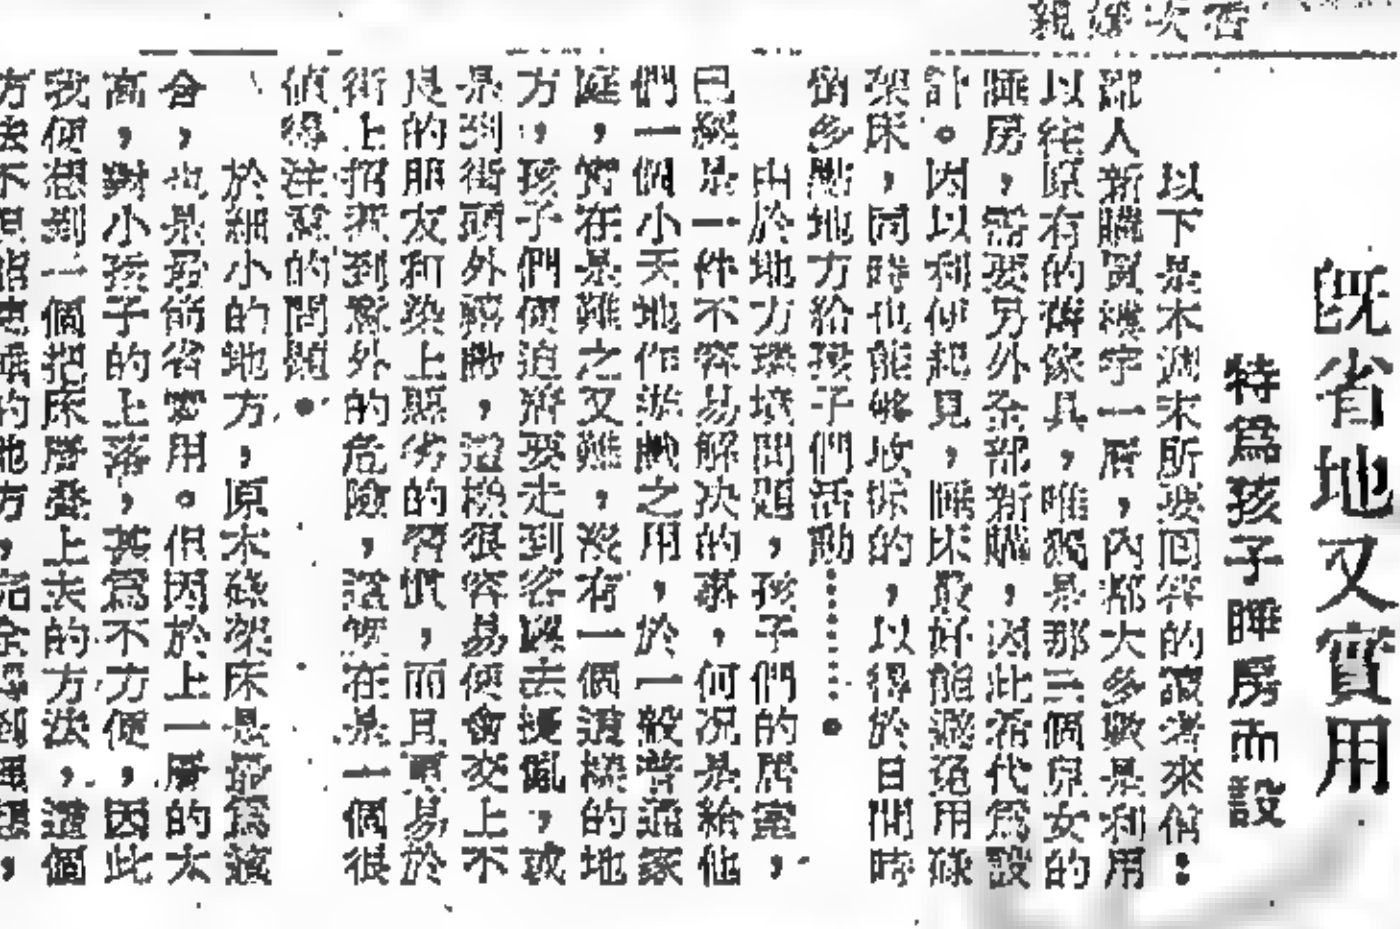 既省地又實用
特爲孩子睡房而設
以下是本週末所要回答的讀者來信：
鄙人新購置樓宇一層，內部大多數是利用
以往原有的舊傢具，唯獨是那三個兒女的
睡房，需要另外全部新購，因此希代爲設
計。因以利便起見，睡床最好能避免用碌
架床，同時也能够收拆的，以得於日間時
倘多點地方給孩子們活動……。
由於地方環境問題，孩子們的居室，
已經是一件不容易解决的事，何况是給他
們一個小天地作遊戲之用，於一般普通家
庭，實在是難之又難，沒有一個這樣的地
方，孩子們便迫著要走到客廳去擾亂，或
是到街頭外嬉戲，這樣很容易便會交上不
良的朋友和染上惡劣的習慣，而且更易於
街上招致到意外的危險，這實在是一個很
值得注意的問題。
於細小的地方，原本碌架床是最爲適
合，也是最節省費用。但因於上一層的太
高，對小孩子的上落，甚爲不方便，因此
我便想到一個把床層叠上去的方法，這個